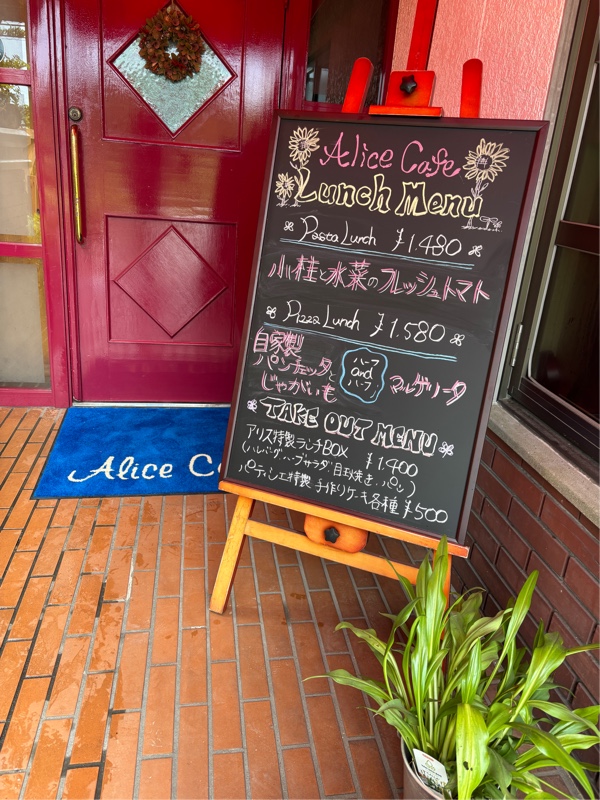 Alice Cafe
Lunch Menu
Pasta Lunch ¥1.480
小柱と水菜のフレッシュトマト
Pizza Lunch ¥1.580
自家製
パンチェッタと
じゃがいも
ハーフ
and
ハーフ
マルゲリータ
TAKE OUT MENU
アリス特製ランチBOX ¥1,400
(ハンバーグ・ハーブサラダ 目玉焼き、パン)
パティシエ特製 手作りケーキ各種 ¥500
Alice C